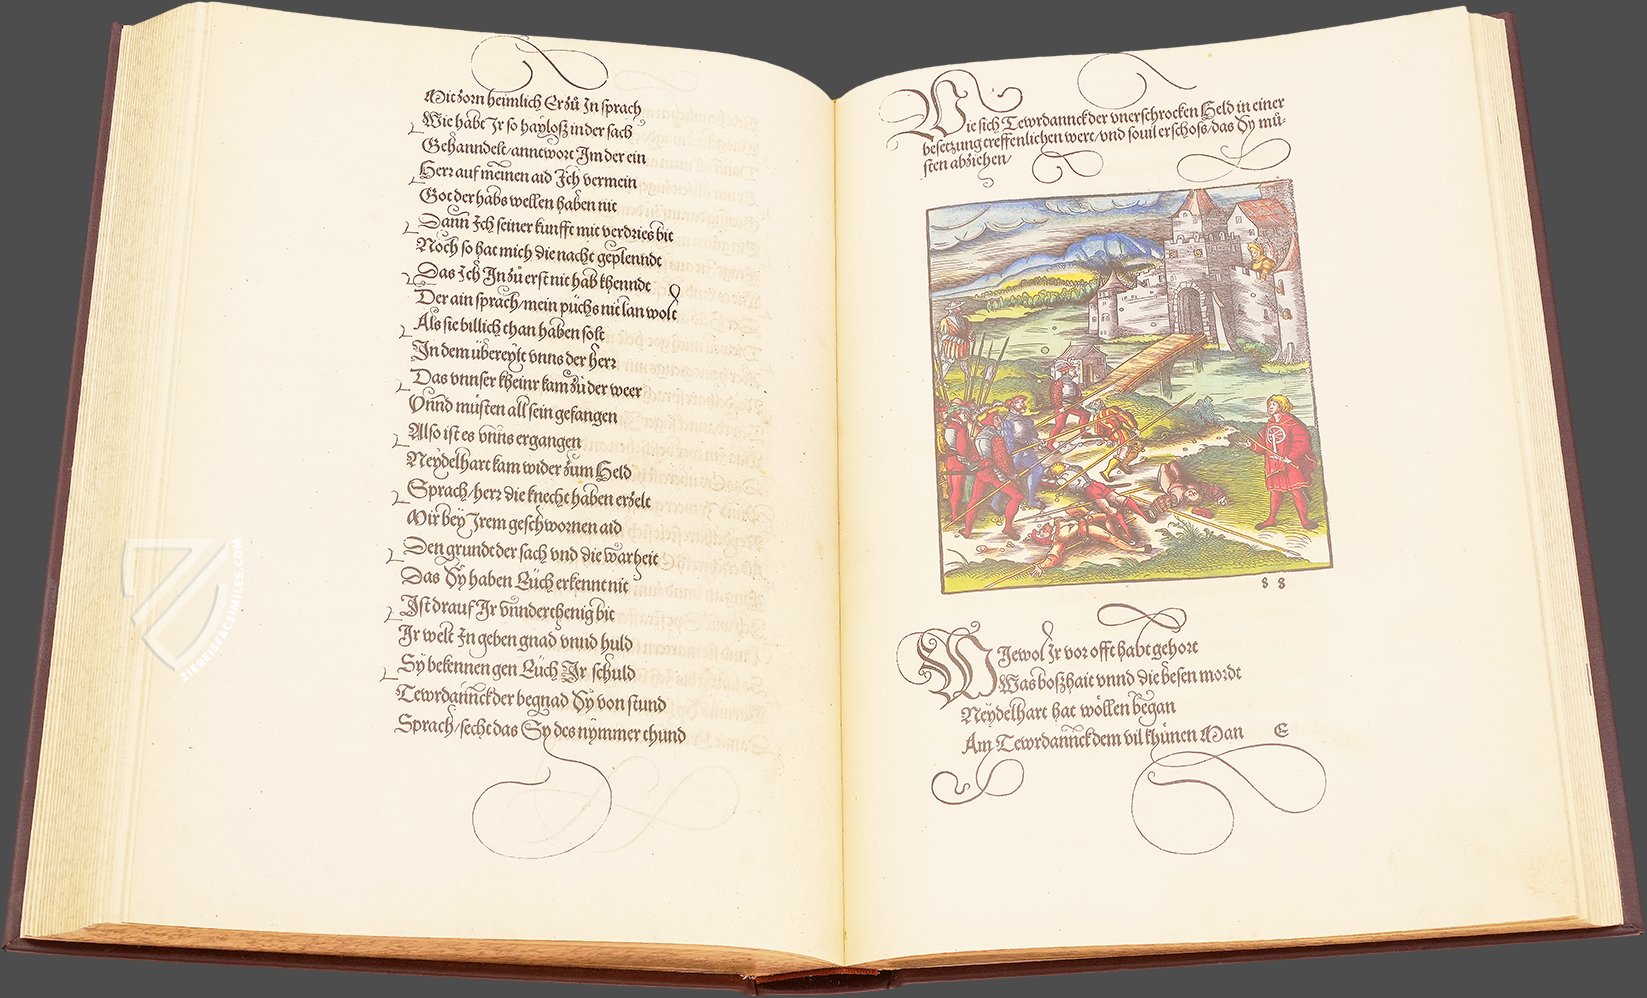 Mit zorn heimlich Er zů In sprach
Wie habt Ir so hayloß in der sach
Gehanndelt/ anntwort Im der ein
Herr auf meinen aid Ich vermein
Got der habs wellen haben nit
Dann Ich seiner kunfft mit verdries bit
Noch so hat mich die nacht geplenndt
Das Ich In zů erst nit hab khenndt
Der ain sprach/ mein püchs nit lan wolt
Als sie billich than haben solt
In dem übereylt vnns der herr
Das vnnser kheinr kam zů der weer
Vnnd müsten all sein gefangen
Also ist es vnns ergangen
Neydelhart kam wider zum Held
Sprach/ herr die knecht haben erzelt
Mir bey Irem geschwornen aid
Den grundt der sach vnd die warheit
Das Sy haben Eüch erkennt nit
Ist drauf Ir vnnderthenig bit
Ir welt In geben gnad vnnd huld
Sy bekennen gen Eüch Ir schuld
Tewrdannckder begnad Sy von stund
Sprach/ secht das Sy des nymmer thund
Wie sich Tewrdannckder vnerschrocken Held in einer
besetzung treffenlichen wert/ vnd souil erschoß/ das Sy mü-
sten abziehen/
88
WIewol Ir vor offt habt gehort
Was boßhait vnnd die bösen mordt
Neydelhart hat wöllen began
Am Tewrdannckdem vil khünen Man E
ZIEREISFACSIMILES.COM